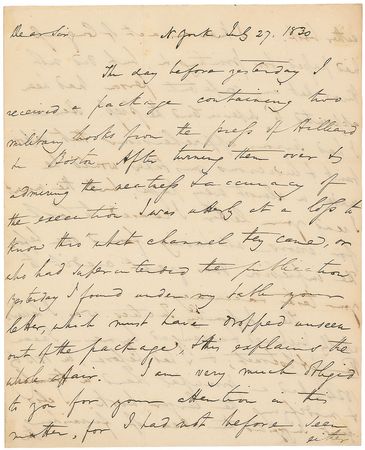 Dear Sir N. York, July 27. 1820
The day before yesterday I
received a package containing two
military books from the press of Hilliard
in Boston. After turning them over &
admiring the neatness & accuracy of
the execution I was utterly at a loss to
know thro' what channel they came, or
who had superintended the publication
yesterday I found under my table your
letter, which must have dropped unseen
out of the package, & this explains the
whole affair. I am very much obliged
to you for your attention in this
matter, for I had not before seen
either